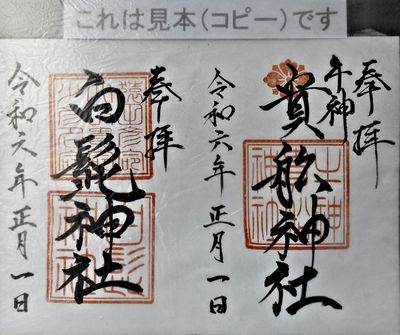 これは見本(コピー)です
奉拝
午神
貴船神社
令和六年正月一日
奉拝
白髭神社
令和六年正月一日